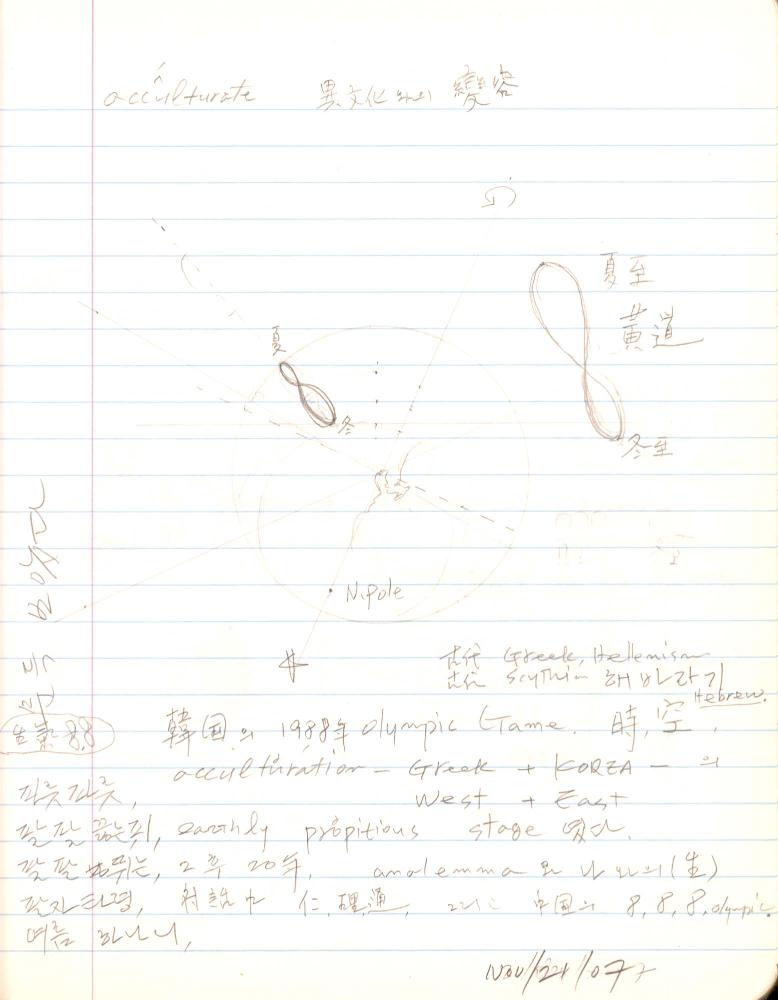 acculturate 異文化와의 變容
夏至
黃道
冬至
夏
冬
N.pole
古代 Greek, Hellenism
古代 Scythian 해바라기
Hebrew.
韓国의 1988年 Olympic Game. 時, 空,
生業 88
acculturation - Greek + KOREA - 의
West + East
파릇파릇,
팔팔 끓는피, earthly propitious stage 였다.
팔팔 뛰는, 그후 20年, analemma 와 나와의 (生)
팔자타령, 対話中 仁, 理通, 그리고 中国의 8, 8, 8, olympic.
여름 하나니,